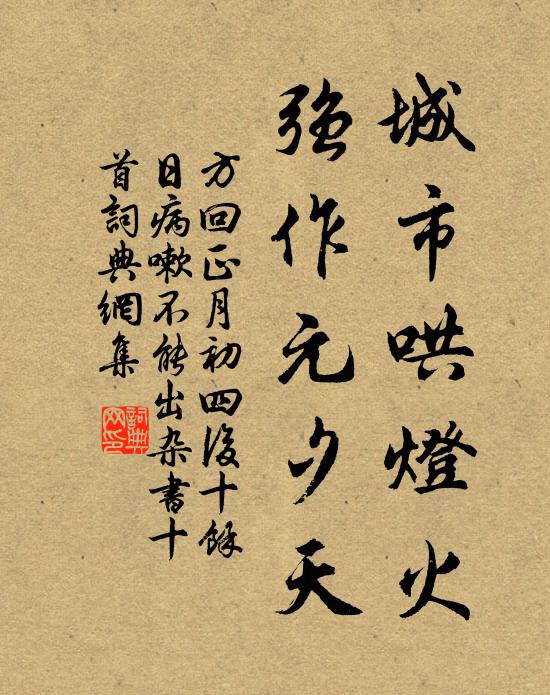 城市哄燈火
强作元夕天
方回正月初四後十餘
日病嗽不能出杂書十
首詞典網集
詞典
网印